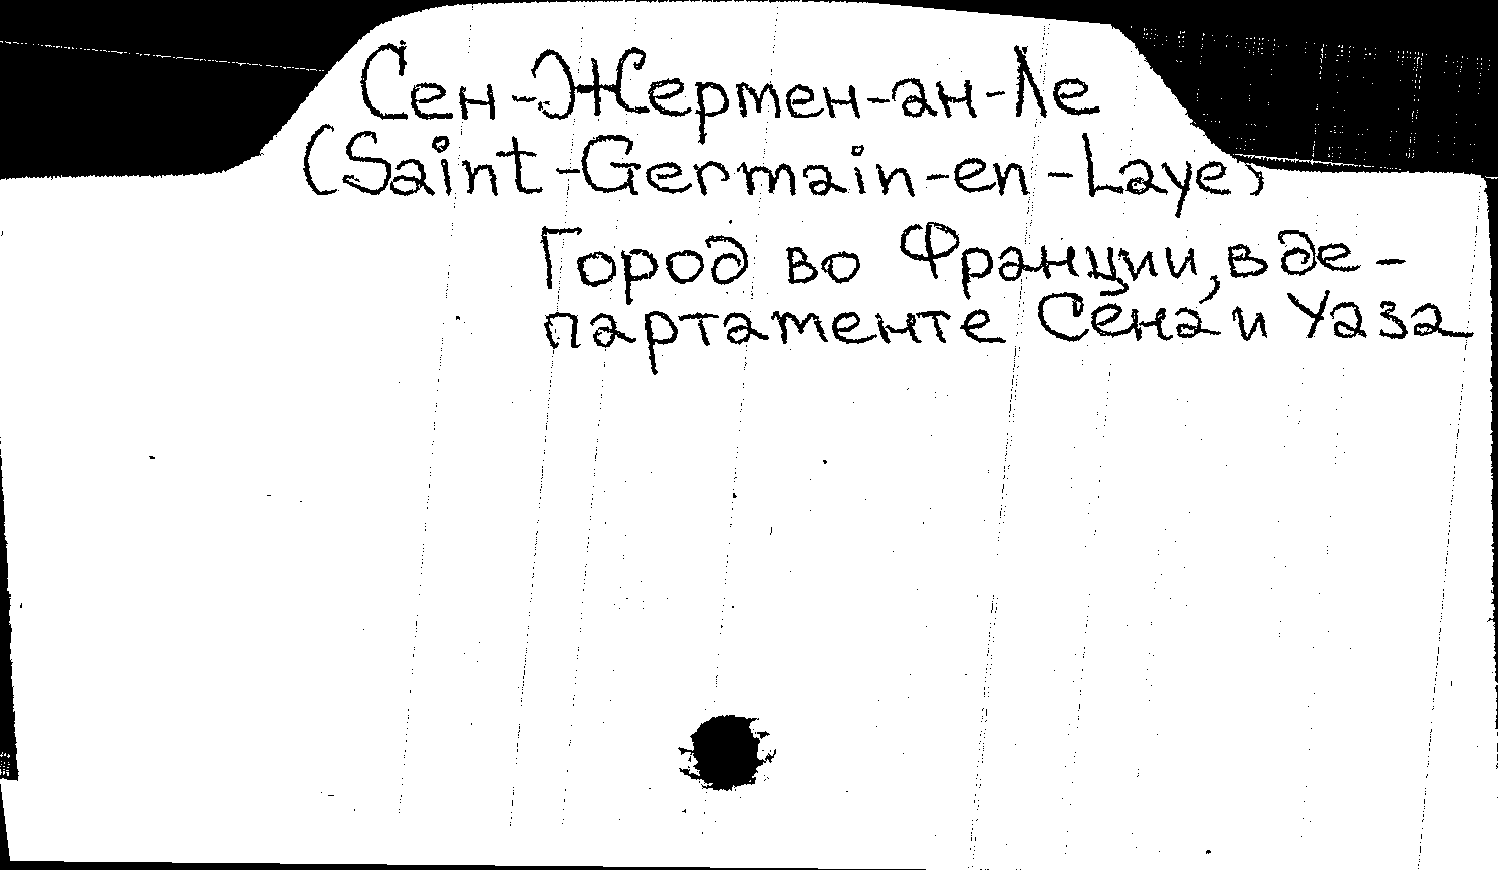 Сен-Жермен-ан-Ле
(Saint-Germain-en-Laye)
Город во Франции, в де-
партаменте Сена и Уаза